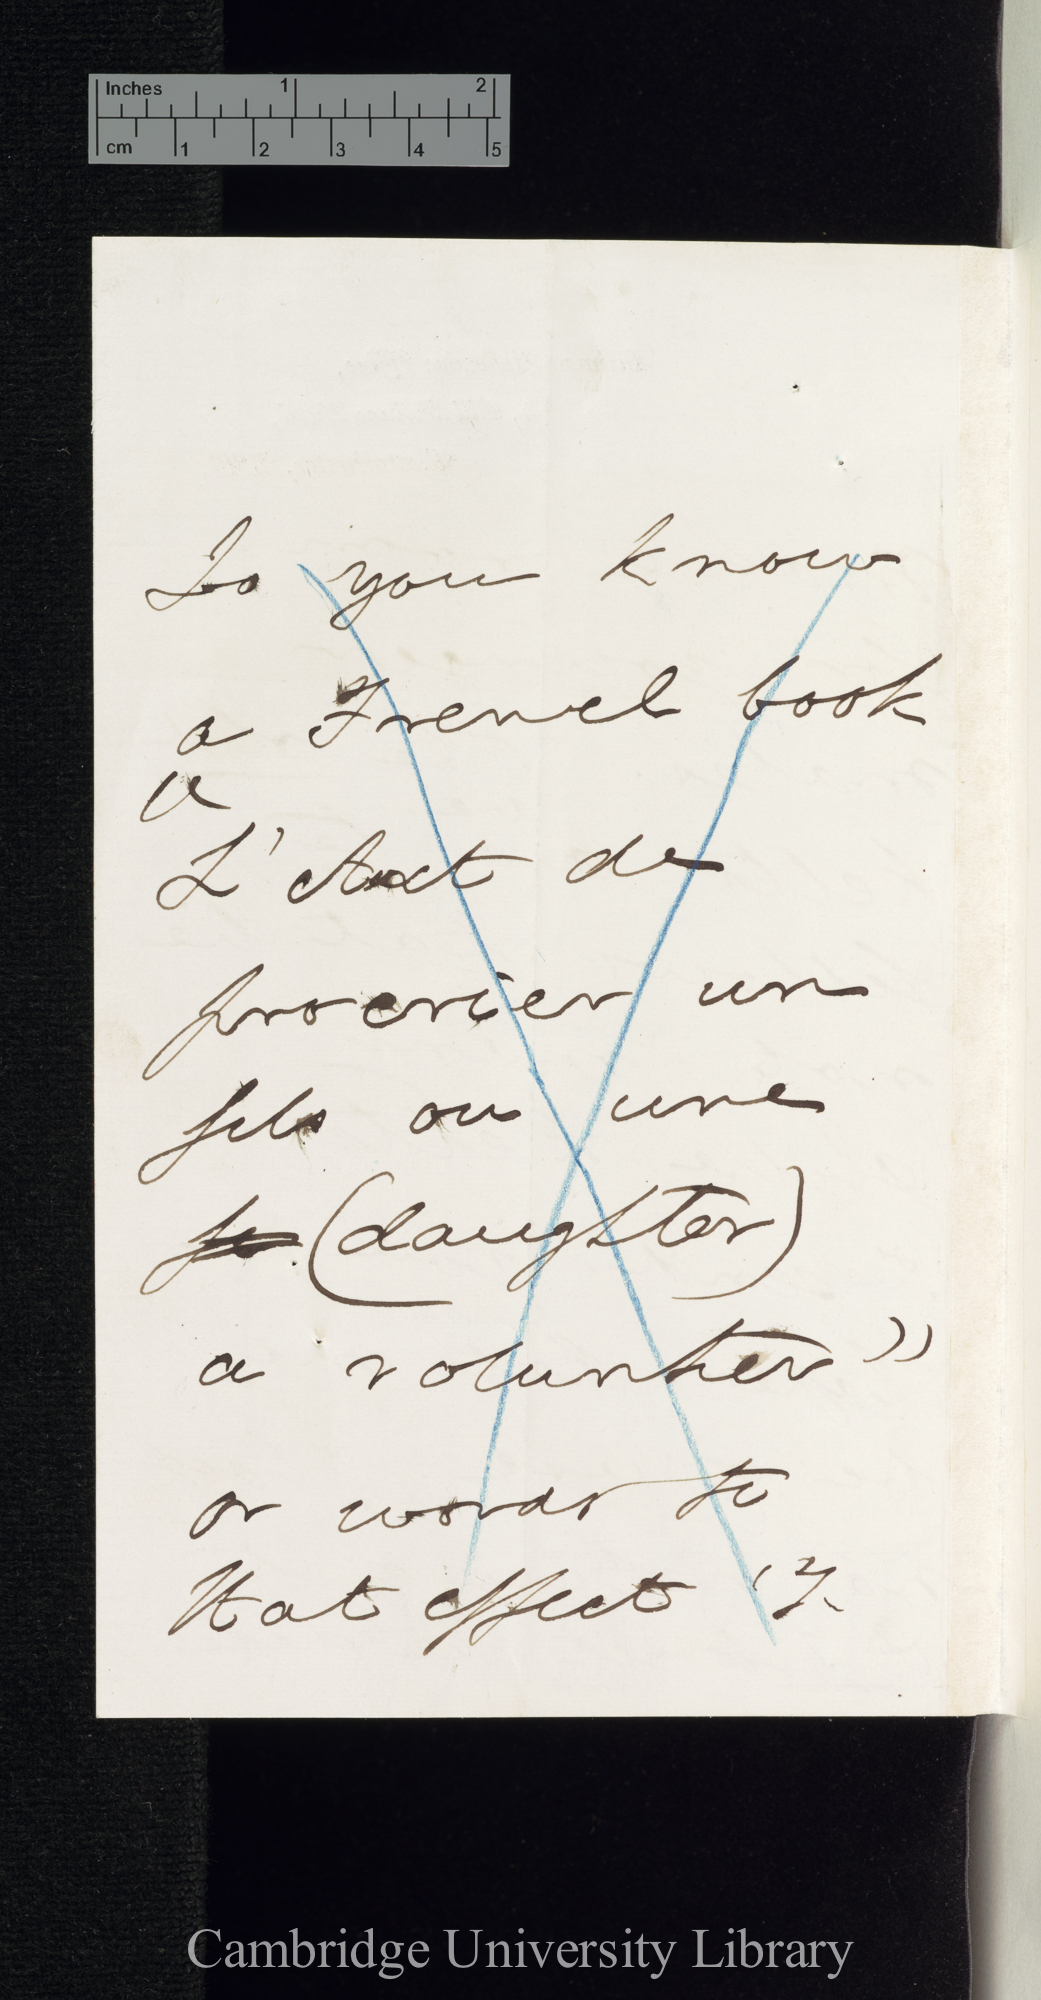 Inches 1 2
cm 1 2 3 4 5
Do you know
a French book
"
L'Art de
procrier un
fils ou une
(daughter)
a volunter"
or words to
that effect?
Cambridge University Library